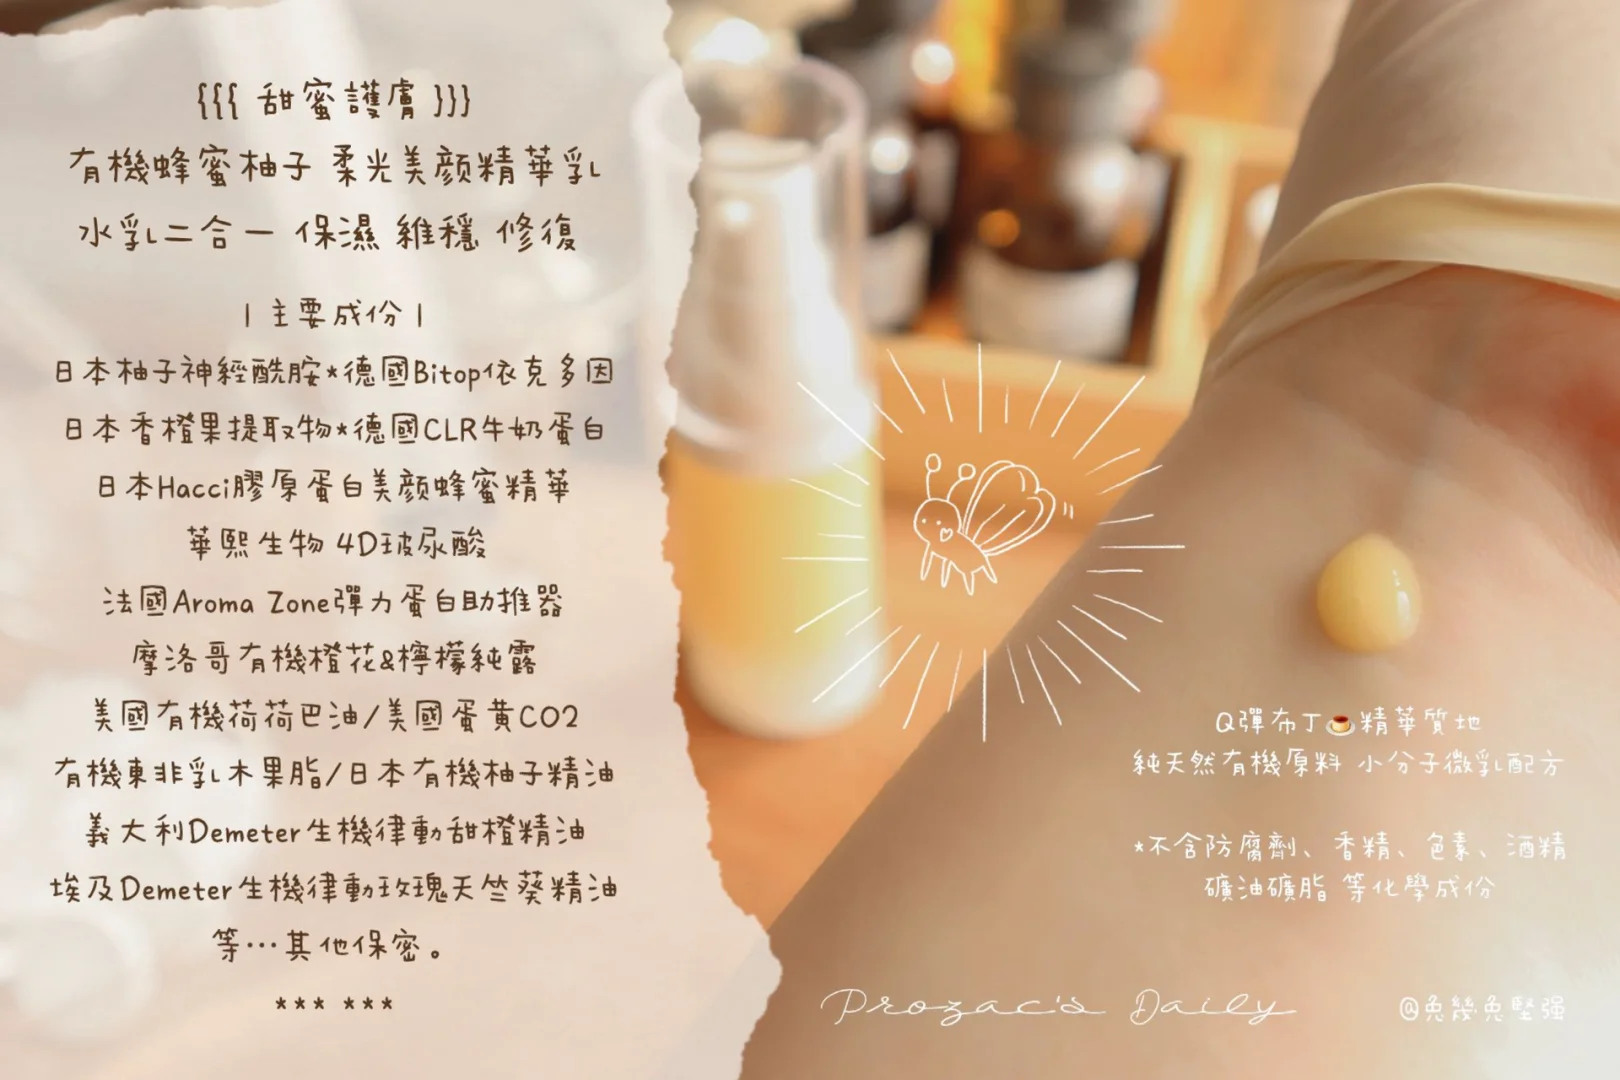 {{{ 甜蜜護膚 }}}
有機蜂蜜柚子 柔光美颜精華乳
水乳二合一 保濕 維穩 修復
| 主要成份 |
日本柚子神經酰胺*德國Bitop依克多因
日本香橙果提取物*德國CLR牛奶蛋白
日本Hacci膠原蛋白美颜蜂蜜精華
華熙生物 4D玻尿酸
法國Aroma Zone彈力蛋白助推器
摩洛哥有機橙花&檸檬純露
美國有機荷荷巴油/美國蛋黄CO2
有機東非乳木果脂/日本有機柚子精油
義大利Demeter生機律動甜橙精油
埃及Demeter生機律動玫瑰天竺葵精油
等…其他保密。
*** ***
Q彈布丁☕精華質地
純天然有機原料 小分子微乳配方
*不含防腐劑、香精、色素、酒精
礦油礦脂 等化學成份
Prozac's Daily
@兔幾兔堅强